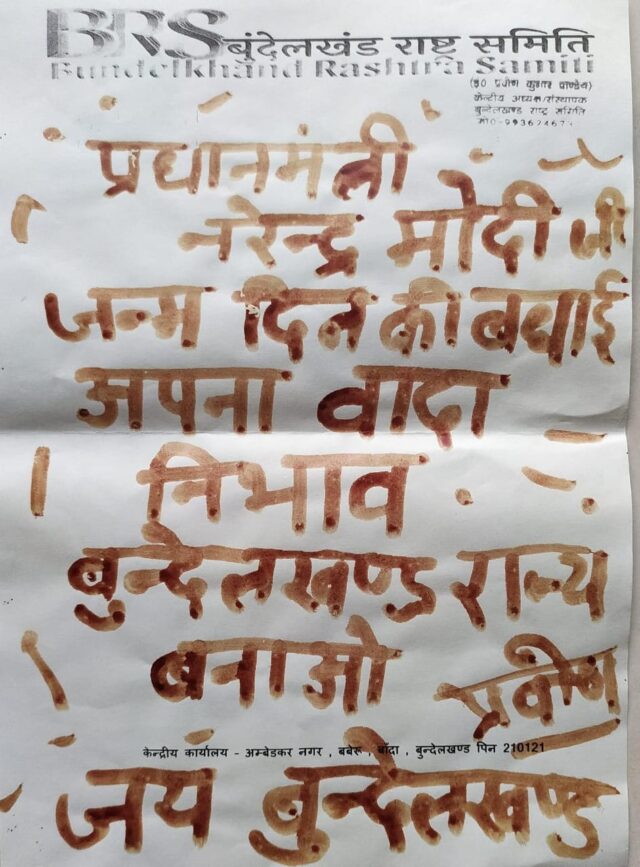 BRS बुंदेलखंड राष्ट्र समिति
Bundelkhand Rashtra Samiti
(डा० प्रवीण कुमार पाण्डेय)
केन्द्रीय अध्यक्ष/संस्थापक
बुन्देलखण्ड राष्ट्र समिति
प्रधानमंत्री
नरेन्द्र मोदी जी
जन्म दिन की बधाई
अपना वादा
निभाव
बुन्देलखण्ड राज्य
बनाओ
प्रवीण
केन्द्रीय कार्यालय - अम्बेडकर नगर , बबेरू , बाँदा , बुन्देलखण्ड पिन 210121
जय बुन्देलखण्ड